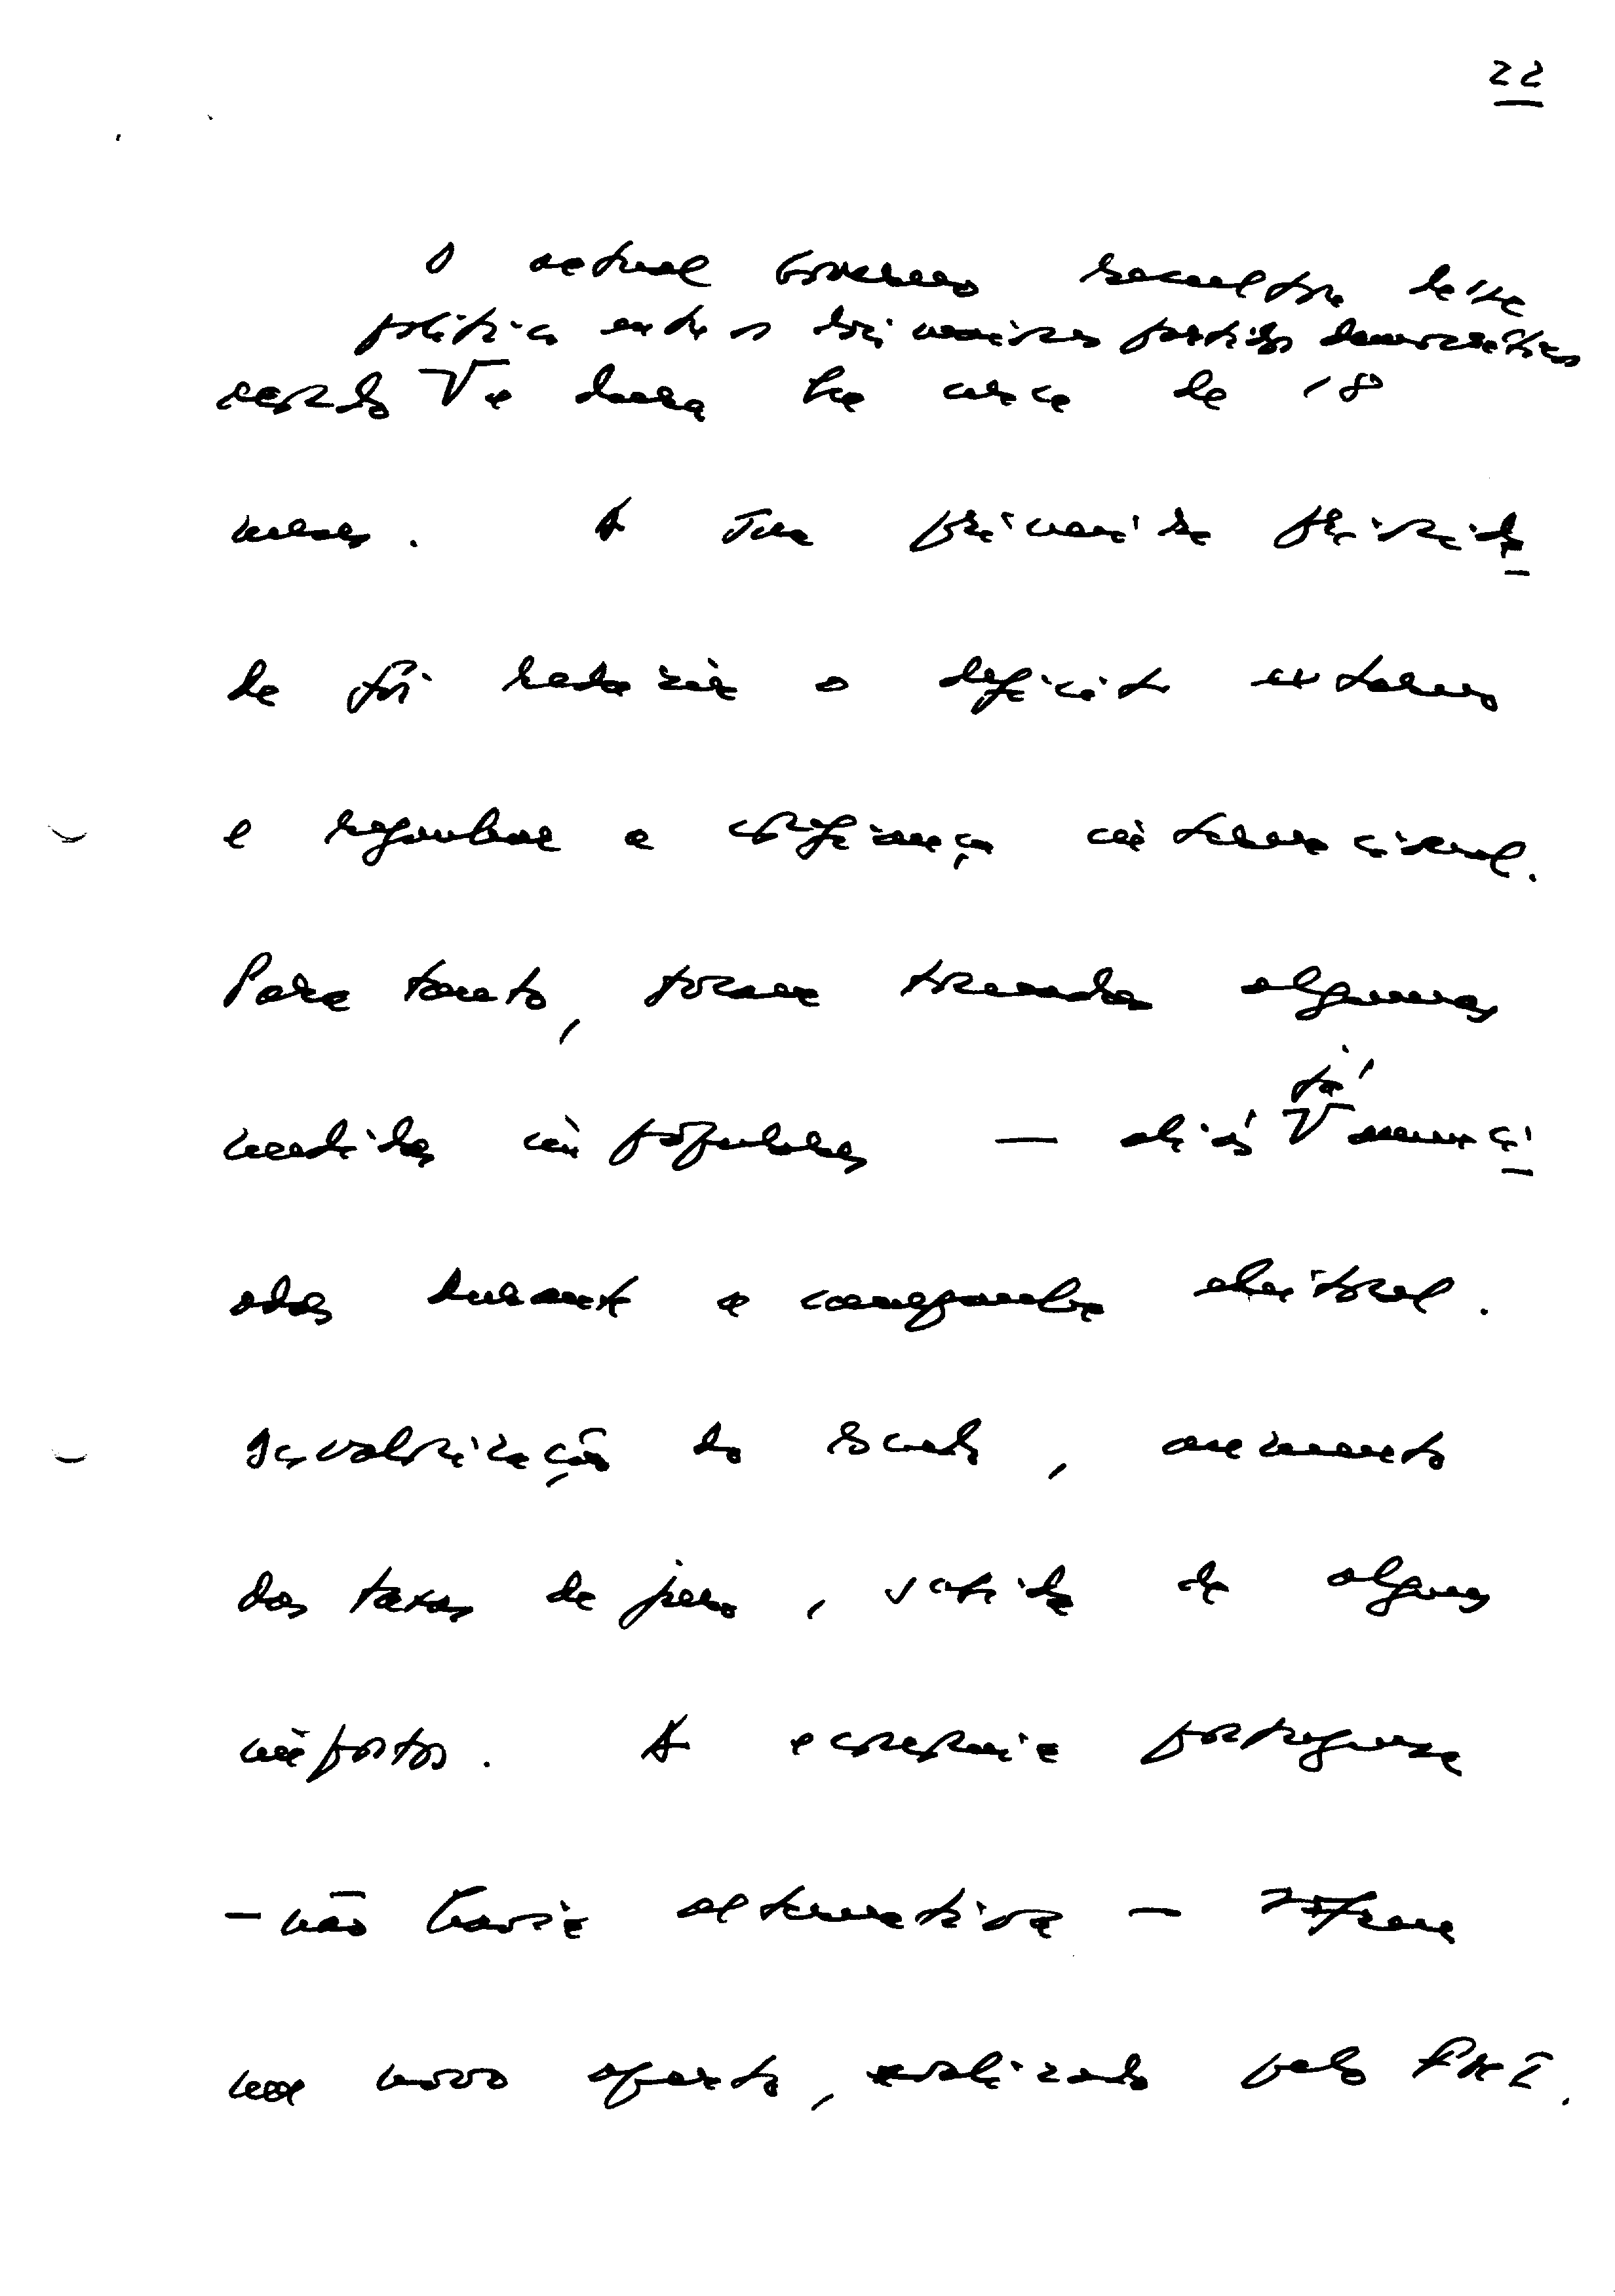 22
O actual Governo resultou deste
política entre os dois maiores partidos democráticos
acordo V e dura há cerca de 18
meses. A sua primeira priorida
de foi reduzir o deficit externo
e reganhar a confiança internacional.
Para tanto, foram tomadas algumas
medidas impopulares — aliás V anunci
já
adas durante a campanha eleitoral.
Desvalorização do Escudo, aumento
das taxas de juro, subida de alguns
impostos. A economia portuguesa
- não havia alternativa - sofreu
um novo aperto, avalizado pelo FMI.